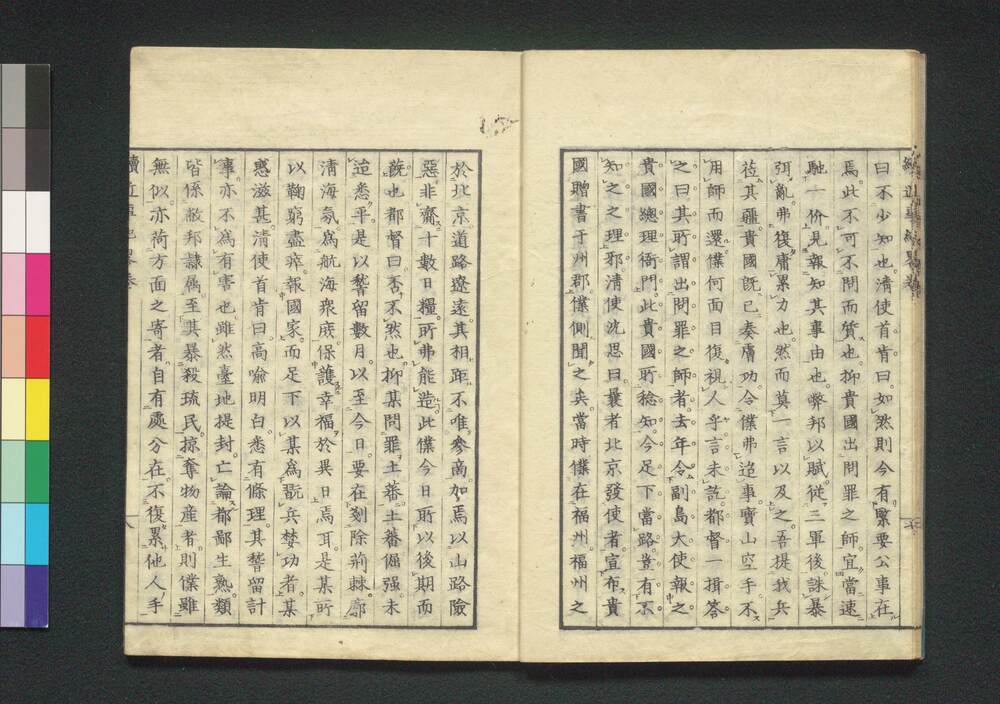 曰不少知也清使首肯曰如然則今有緊要公事在
焉此不可不問而質也抑貴國出問罪之師宜當速
馳一价見報知其事由也弊邦以賦從三軍後誅暴
弭亂弗復庸累力也然而莫一言以及之吾提我兵
莅其疆貴國既已奏膚功令僕弗迨事寶山空手不
用師而還僕何面目復視人乎言未訖都督一揖答
之曰其所謂出問罪之師者去年令副島大使報之
貴國總理衙門此貴國所稔知今足下當路豈有不
知之之理邪清使沈思曰曩者北京發使者宣布貴
國贈書于州郡僕側聞之矣當時僕在福州福州之
於北京道路遼遠其相距不唯參商如焉以山路險
惡非齎十數日糧所弗能造此僕今日所以後期而
既也都督曰否不然也抑某問罪土蕃土蕃倔强未
迨悉平是以嶅留數月以至今日要在剗除荊棘廓
淸海氛爲航海衆庶保護幸福於異日焉耳是某所
以鞠窮盡瘁報國家而足下以某爲翫兵婪功者某
惑滋甚清使首肯曰高喩明白悉有條理其嶅留計
事亦不爲有害也雖然臺地提封亡論都鄙生熟類
皆係敝邦隷屬至其暴殺琉民掠奪物産者則僕雖
無似亦荷方面之寄者自有處分在不復累他人手